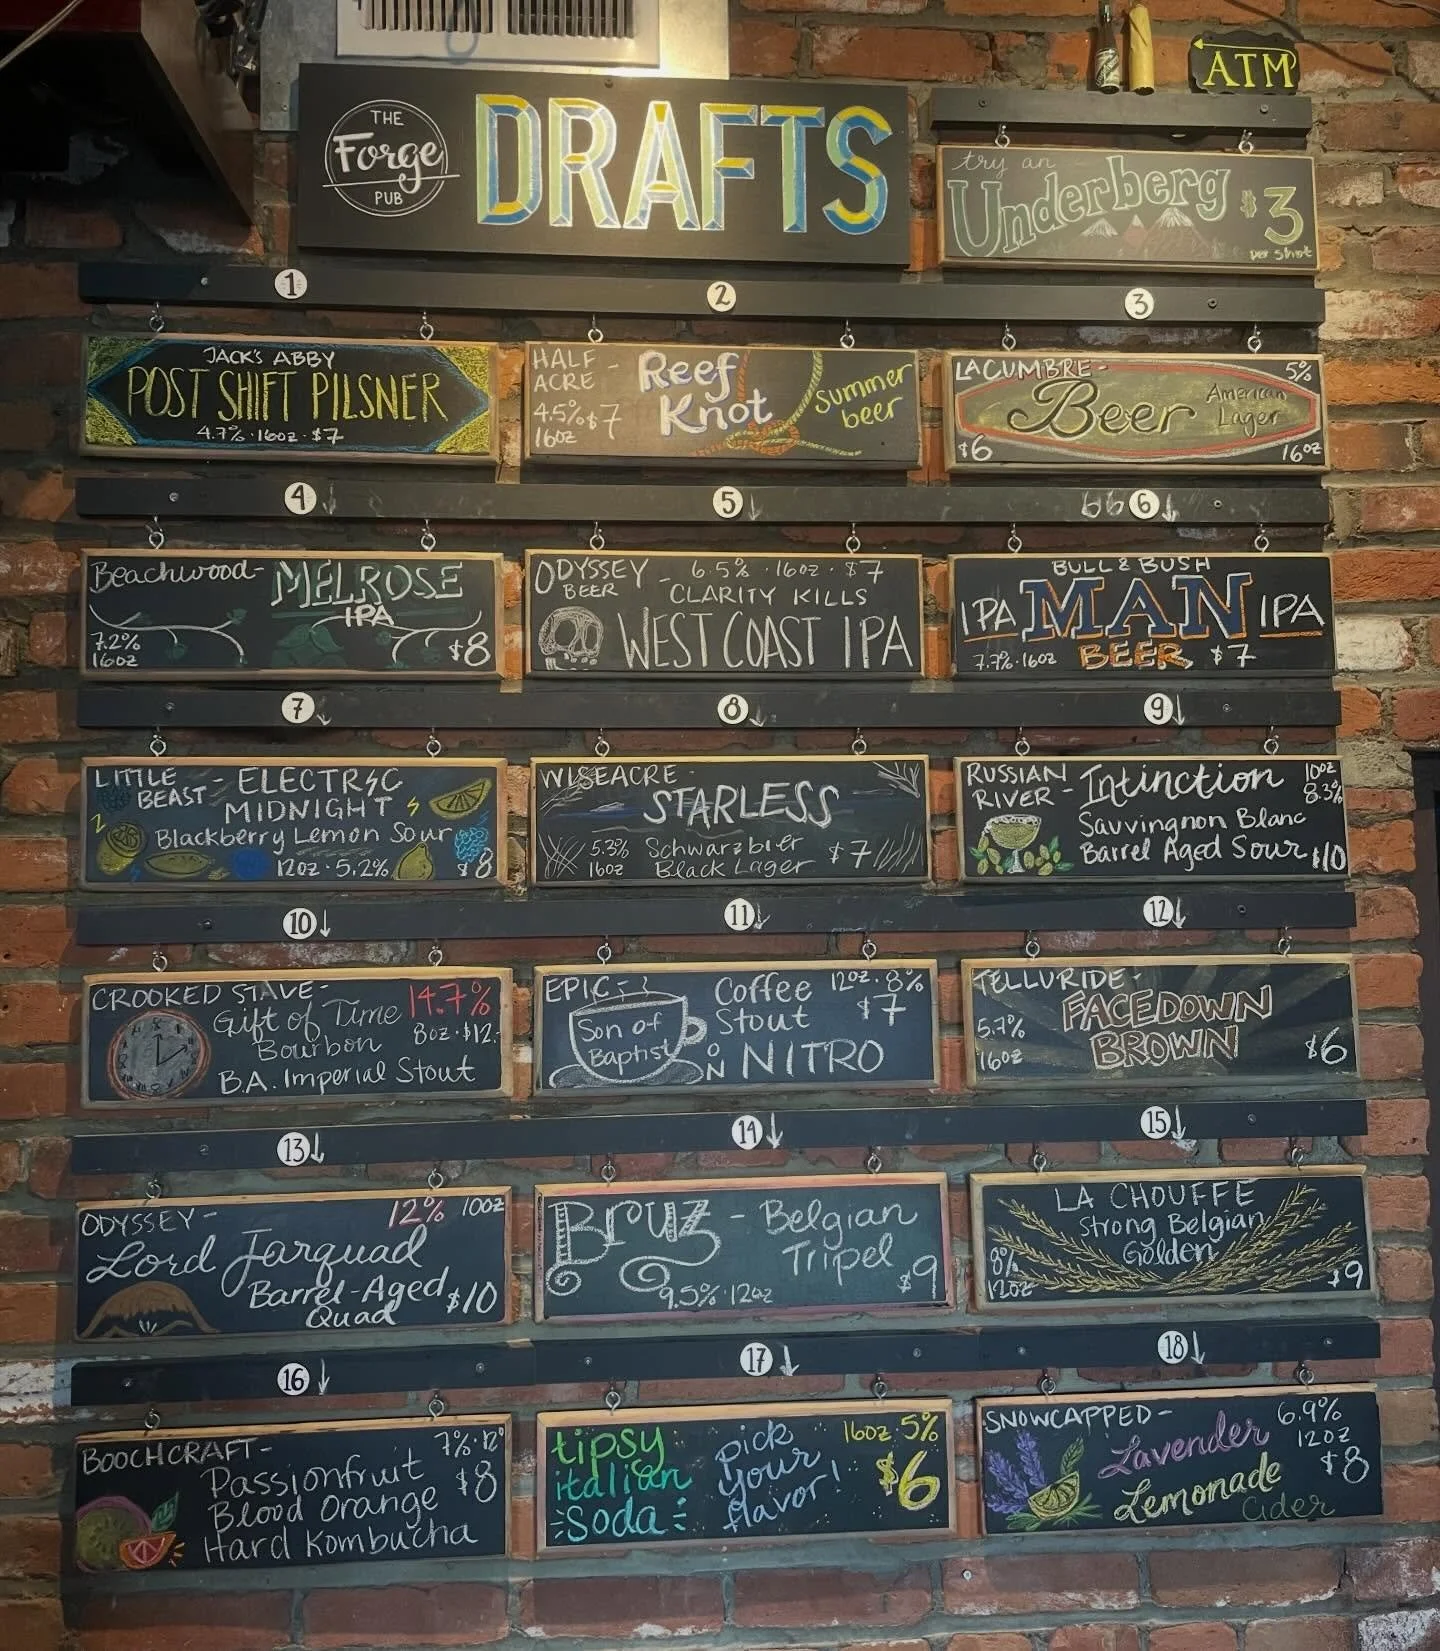 ATM
THE
Forge
PUB
DRAFTS
try an
Underberg
$3
per shot
1
JACK'S ABBY
POST SHIFT PILSNER
4.7% · 16oz · $7
2
HALF
ACRE -
4.5% $7
16oz
Reef
Knot
Summer
beer
3
LA CUMBRE -
5%
Beer
American
Lager
$6
16oz
4
Beachwood -
MELROSE
IPA
7.2%
16oz
$8
5
ODYSSEY
BEER -
6.5% · 16oz · $7
CLARITY KILLS
WEST COAST IPA
6
BULL & BUSH
IPA MAN IPA
BEER
7.7% · 16oz
$7
7
LITTLE
BEAST -
ELECTRIC
MIDNIGHT
Blackberry Lemon Sour
12oz · 5.2%
$8
8
WISEACRE -
STARLESS
5.3%
16oz
Schwarzbier
Black Lager
$7
9
RUSSIAN
RIVER -
Intinction
10oz
8.3%
Sauvingnon Blanc
Barrel Aged Sour
$10
10
CROOKED STAVE -
Gift of Time
14.7%
Bourbon
8oz · $12
B.A. Imperial Stout
11
EPIC -
Son of
Baptist
Coffee
Stout
12oz · 8%
$7
ON NITRO
12
TELLURIDE -
FACEDOWN
BROWN
5.7%
16oz
$6
13
ODYSSEY -
12% 10oz
Lord Farquad
Barrel-Aged
Quad
$10
14
Bruz - Belgian
Tripel
9.5% · 12oz
$9
15
LA CHOUFFE
Strong Belgian
Golden
8%
12oz
$9
16
BOOCHCRAFT -
7% · 12°
Passionfruit
Blood Orange
Hard Kombucha
$8
17
tipsy
italian
soda
pick
your
flavor!
16oz 5%
$6
18
SNOWCAPPED -
6.9%
12oz
$8
Lavender
Lemonade
Cider